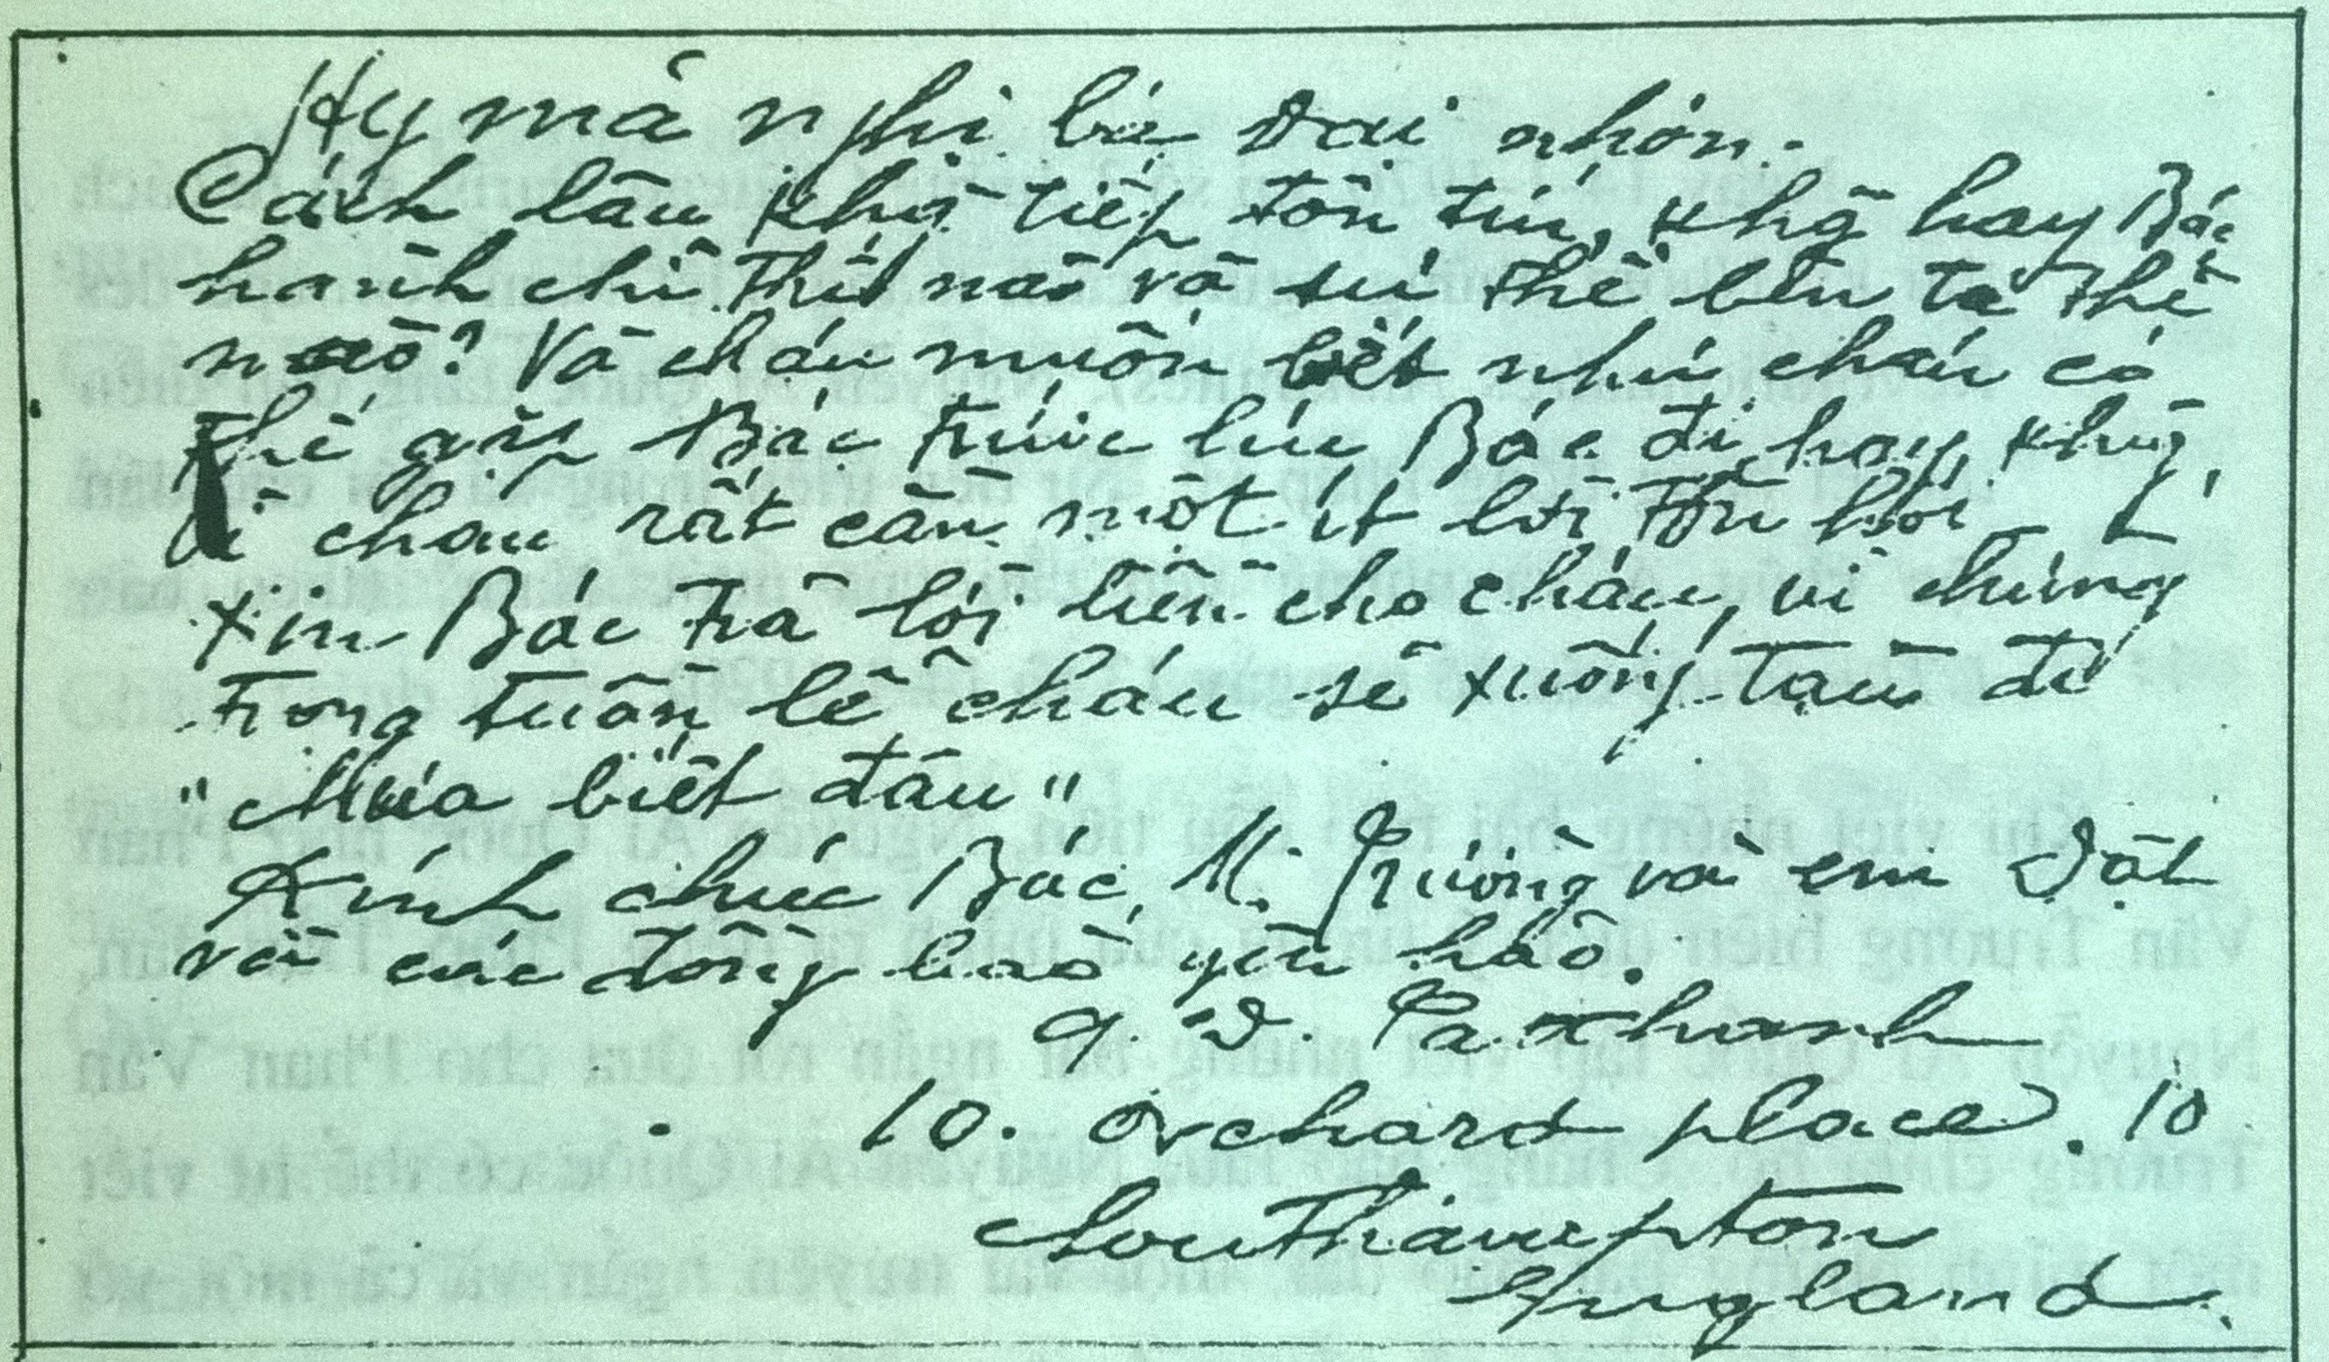 Hy mã nghi bá đại nhơn.
Cách lâu khg tiếp tôn tín, khg hay Bác
hành chỉ thể nào và sự thế bên ta thế
nào? Và cháu muốn biết như cháu có
thể gặp Bác trước lúc Bác đi hay khg,
vì cháu rất cần một ít lời tôn hối
xin Bác trả lời liền cho cháu, vì chừng
trong tuần lễ cháu sẽ xuống tàu đi
"Mựa biết đâu"
Kính chúc Bác, M. Trường và em Dật
và các đồng bào yên hảo.
N. Tat Thanh
10. orchard place. 10
Southampton
England.